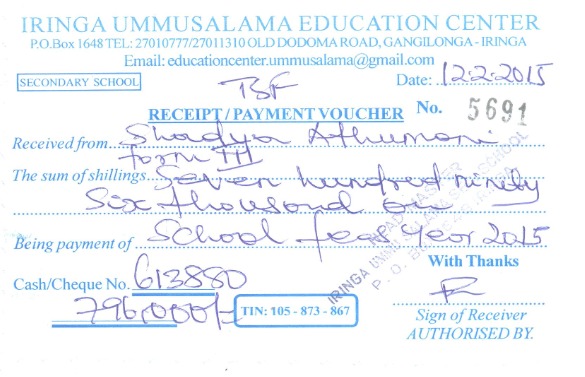 IRINGA UMMUSALAMA EDUCATION CENTER
P.O.Box 1648 TEL: 27010777/27011310 OLD DODOMA ROAD, GANGILONGA - IRINGA
Email: educationcenter.ummusalama@gmail.com
SECONDARY SCHOOL
TSF
Date: 12.2.2015
RECEIPT / PAYMENT VOUCHER No. 5691
Received from Shadya Athumani
form III
The sum of shillings Seven hundred ninety
Six thousand only
Being payment of School fees year 2015
With Thanks
Cash/Cheque No. 613880
796,000/=
TIN: 105 - 873 - 867
Sign of Receiver
AUTHORISED BY.
HEAD MASTER
IRINGA UMMUSALAMA SEC SCHOOL
P. O. BOX IRINGA